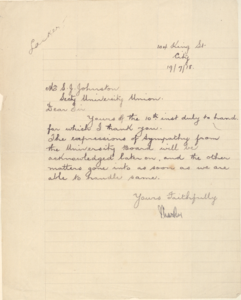 104 King St
City
19/7/18
Mr S. J. Johnston
Secty University Union
Dear Sir
Yours of the 16th inst duly to hand
for which I thank you.
The expressions of Sympathy from
the University Board will be
acknowledged later on, and the other
matters gone into as soon as we are
able to handle same.
Yours Faithfully